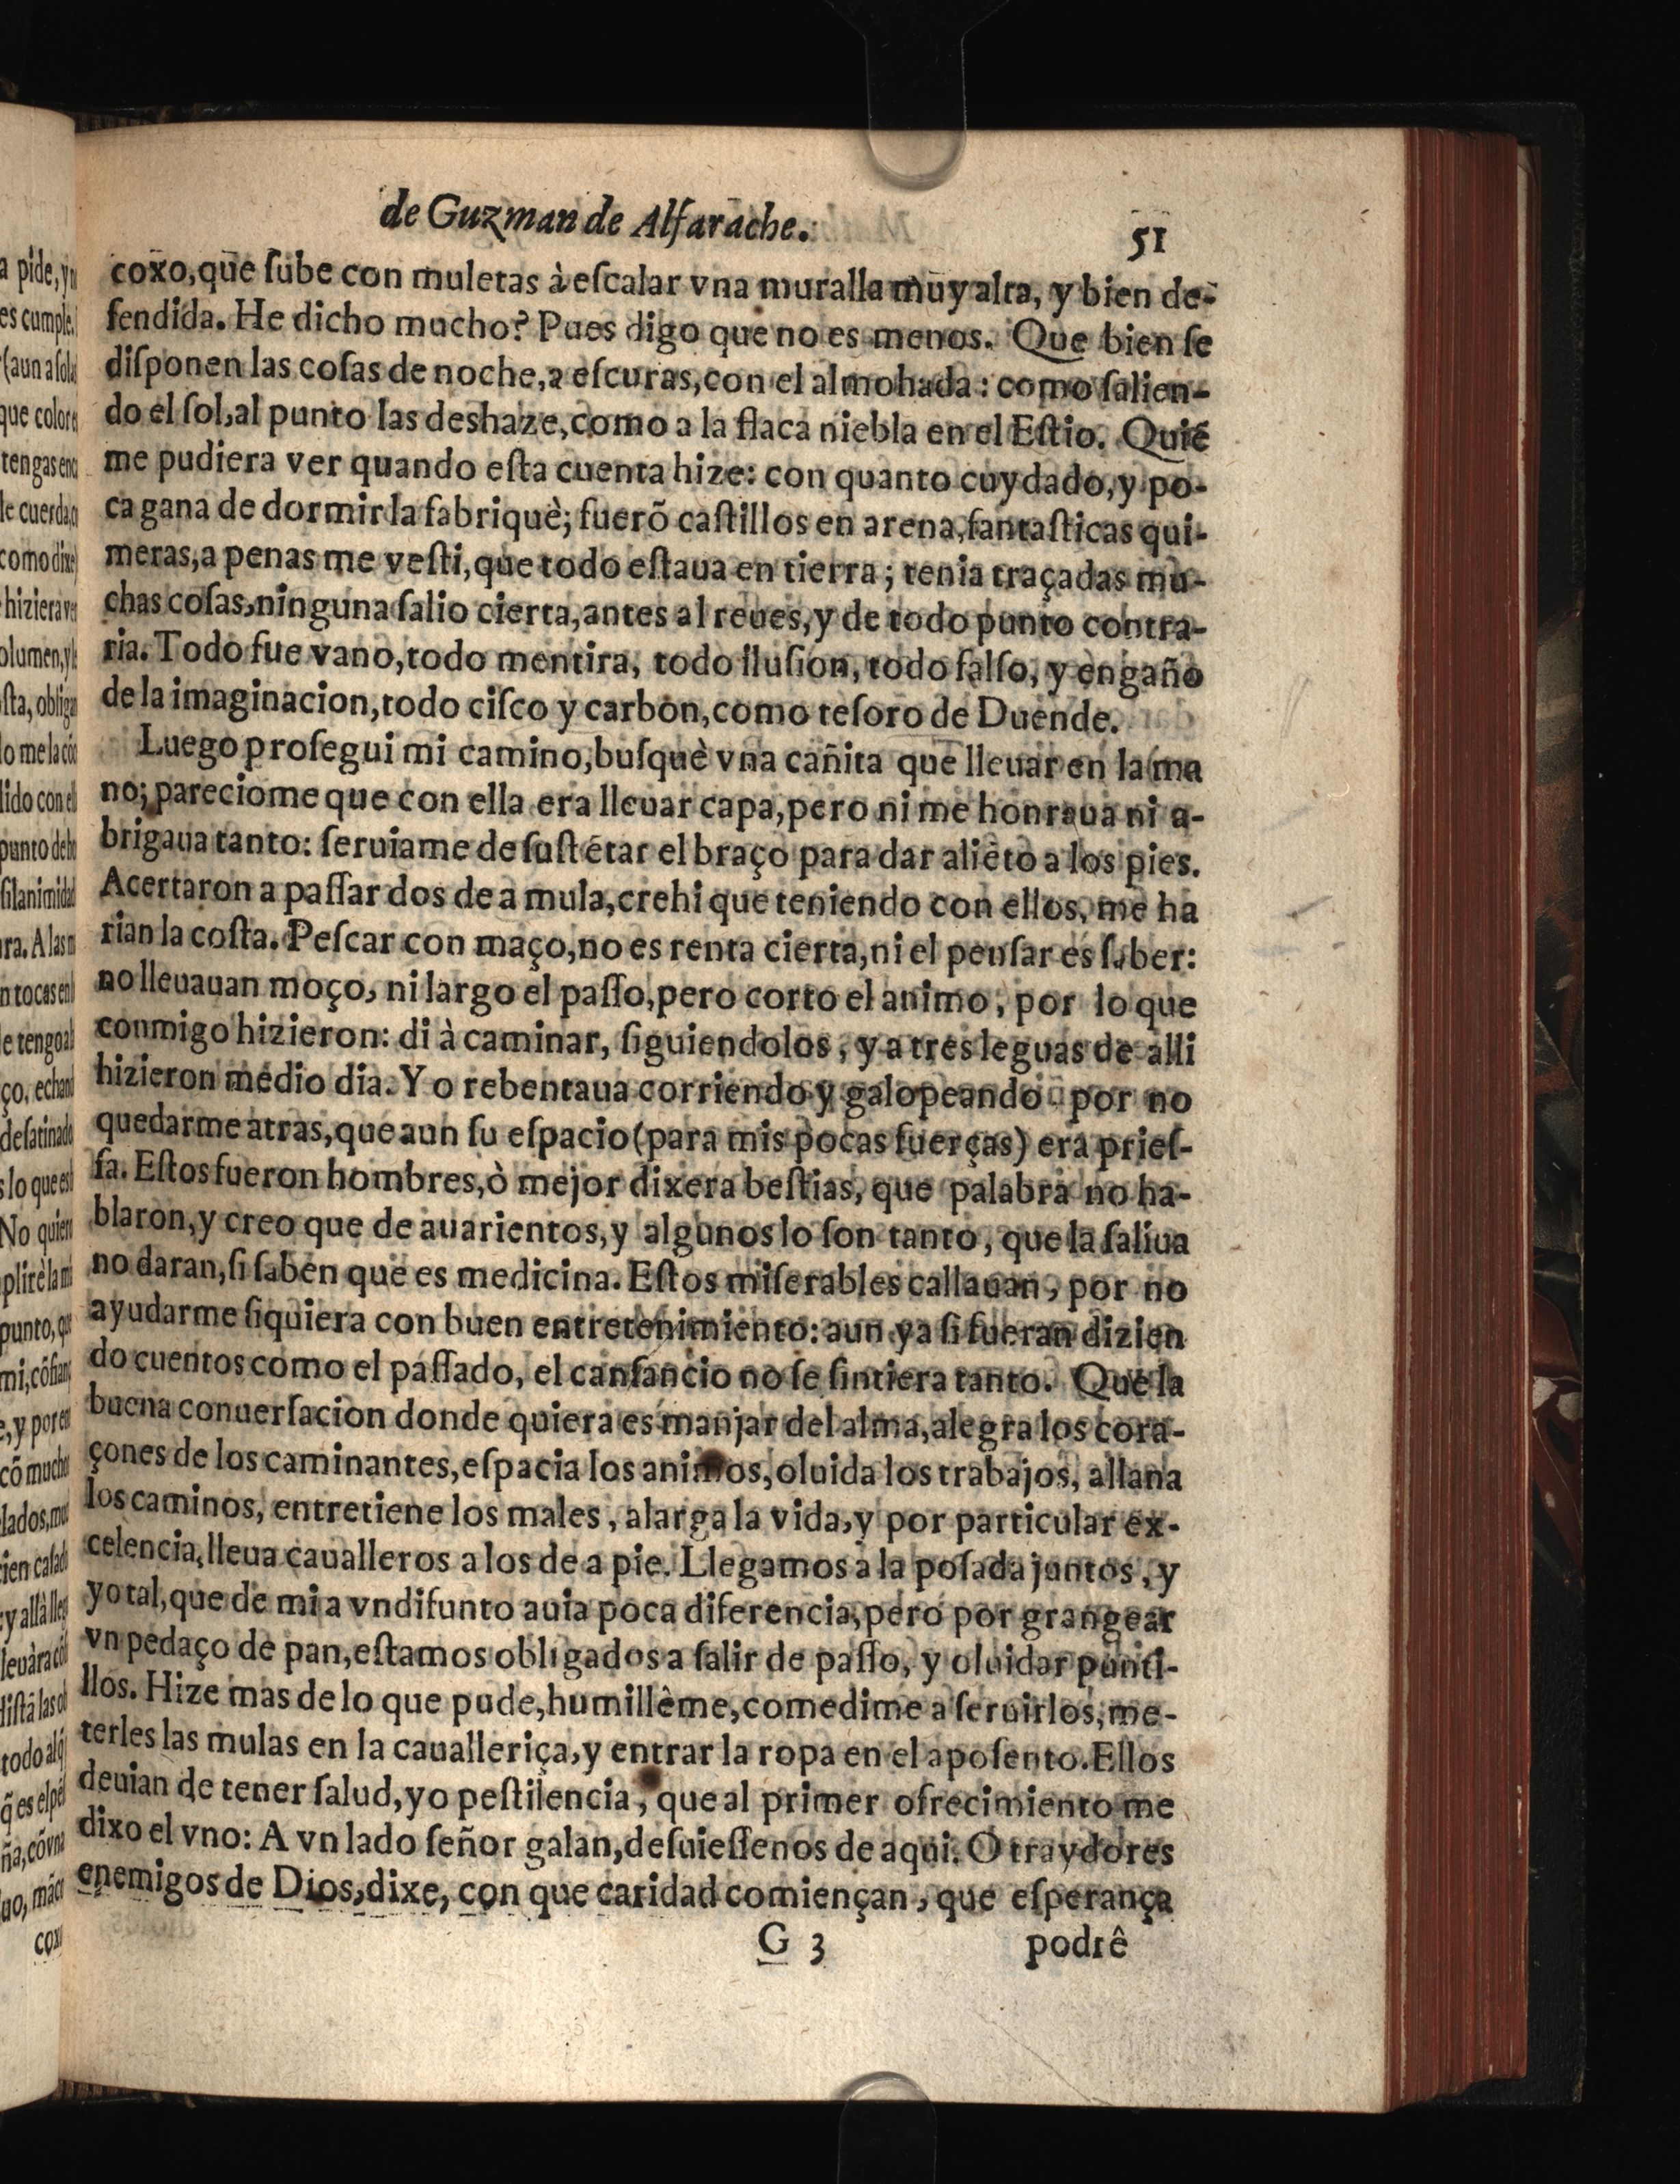 de Guzman de Alfarache.
51
coxo,que ſube con muletas à eſcalar vna muralla muy alta, y bien de-
fendida. He dicho mucho? Pues digo que no es menos. Que bien ſe
diſponen las coſas de noche,a eſcuras,con el almohada : como ſalien-
do el ſol,al punto las deshaze,como a la flaca niebla en el Eſtio. Quiẽ
me pudiera ver quando eſta cuenta hize: con quanto cuydado,y po-
ca gana de dormir la fabriquè; fuerõ caſtillos en arena,fantaſticas qui-
meras,a penas me veſti,que todo eſtaua en tierra ; tenia traçadas mu-
chas coſas,ninguna ſalio cierta,antes al reues,y de todo punto contra-
ria. Todo fue vano,todo mentira, todo iluſion, todo falſo, y engaño
de la imaginacion,todo ciſco y carbon,como teſoro de Duende.
Luego proſegui mi camino,buſquè vna cañita que lleuar en la ma
no; pareciome que con ella era lleuar capa,pero ni me honraua ni a-
brigaua tanto: ſeruiame de ſuſtẽtar el braço para dar aliẽto a los pies.
Acertaron a paſſar dos de a mula,crehi que teniendo con ellos, me ha
rian la coſta. Peſcar con maço,no es renta cierta,ni el penſar es ſaber:
no lleuauan moço, ni largo el paſſo,pero corto el animo, por lo que
conmigo hizieron: di à caminar, ſiguiendolos, y a tres leguas de alli
hizieron medio dia. Yo rebentaua corriendo y galopeando por no
quedarme atras,que aun ſu eſpacio(para mis pocas fuerças) era prieſ-
ſa. Eſtos fueron hombres,ò mejor dixera beſtias, que palabra no ha-
blaron,y creo que de auarientos,y algunos lo ſon tanto, que la ſaliua
no daran,ſi ſaben que es medicina. Eſtos miſerables callauan, por no
ayudarme ſiquiera con buen entretenimiento: aun ya ſi fueran dizien
do cuentos como el paſſado, el canſancio no ſe ſintiera tanto. Que la
buena conuerſacion donde quiera es manjar del alma,alegra los cora-
çones de los caminantes,eſpacia los animos,oluida los trabajos, allana
los caminos, entretiene los males, alarga la vida,y por particular ex-
celencia,lleua caualleros a los de a pie. Llegamos a la poſada juntos, y
yo tal,que de mi a vn difunto auia poca diferencia,pero por grangear
vn pedaço de pan,eſtamos obligados a ſalir de paſſo, y oluidar punti-
llos. Hize mas de lo que pude,humillème,comedime a ſeruirlos,me-
terles las mulas en la caualleriça,y entrar la ropa en el apoſento.Ellos
deuian de tener ſalud,yo peſtilencia, que al primer ofrecimiento me
dixo el vno: A vn lado ſeñor galan,deſuieſſenos de aqui. O traydores
enemigos de Dios,dixe, con que caridad comiençan, que eſperança
G 3
podrê